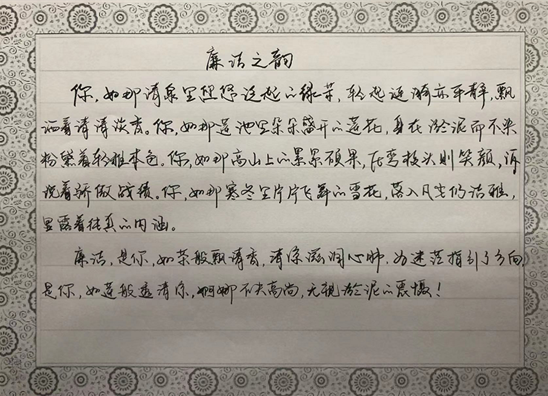 廉洁之韵
你,如那清泉里悠悠泛起的绿芽,轻起涟漪亦平静,飘
洒着清清淡香。你,如那莲池里朵朵盛开的莲花,身在淤泥而不染
粉黛着轻雅本色。你,如那高山上的累累硕果,压弯枝头则笑颜,诉
说着骄傲战绩。你,如那寒冬里片片飞舞的雪花,落入凡尘仍洁雅,
显露着纯真的内涵。
廉洁,是你,如茶般飘清香,清涤滋润心肺,为迷茫指引了方向
是你,如莲般透清保,婀娜不失高尚,无视淤泥的震慑!